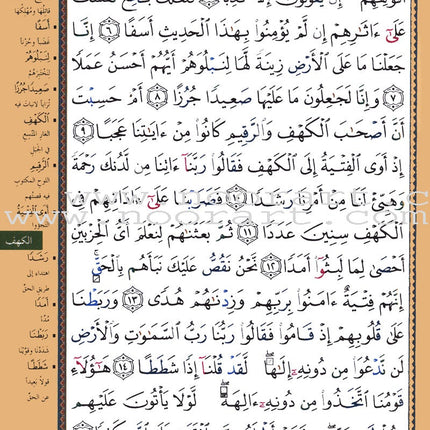 أَفْوَٰهِهِمْ إِن يَقُولُونَ إِلَّا كَذِبًا
عَلَىٰٓ ءَاثَٰرِهِمْ إِن لَّمْ يُؤْمِنُوا۟ بِهَٰذَا ٱلْحَدِيثِ أَسَفًا ۝٦ إِنَّا
جَعَلْنَا مَا عَلَى ٱلْأَرْضِ زِينَةً لَّهَا لِنَبْلُوَهُمْ أَيُّهُمْ أَحْسَنُ عَمَلًا
۝٧ وَإِنَّا لَجَٰعِلُونَ مَا عَلَيْهَا صَعِيدًا جُرُزًا ۝٨ أَمْ حَسِبْتَ
أَنَّ أَصْحَٰبَ ٱلْكَهْفِ وَٱلرَّقِيمِ كَانُوا۟ مِنْ ءَايَٰتِنَا عَجَبًا ۝٩
إِذْ أَوَى ٱلْفِتْيَةُ إِلَى ٱلْكَهْفِ فَقَالُوا۟ رَبَّنَآ ءَاتِنَا مِن لَّدُنكَ رَحْمَةً
وَهَيِّئْ لَنَا مِنْ أَمْرِنَا رَشَدًا ۝١٠ فَضَرَبْنَا عَلَىٰٓ ءَاذَانِهِمْ فِى
ٱلْكَهْفِ سِنِينَ عَدَدًا ۝١١ ثُمَّ بَعَثْنَٰهُمْ لِنَعْلَمَ أَىُّ ٱلْحِزْبَيْنِ
أَحْصَىٰ لِمَا لَبِثُوٓا۟ أَمَدًا ۝١٢ نَّحْنُ نَقُصُّ عَلَيْكَ نَبَأَهُم بِٱلْحَقِّ ۚ
إِنَّهُمْ فِتْيَةٌ ءَامَنُوا۟ بِرَبِّهِمْ وَزِدْنَٰهُمْ هُدًى ۝١٣ وَرَبَطْنَا
عَلَىٰ قُلُوبِهِمْ إِذْ قَامُوا۟ فَقَالُوا۟ رَبُّنَا رَبُّ ٱلسَّمَٰوَٰتِ وَٱلْأَرْضِ
لَن نَّدْعُوَا۟ مِن دُونِهِۦٓ إِلَٰهًا ۖ لَّقَدْ قُلْنَآ إِذًا شَطَطًا ۝١٤ هَٰٓؤُلَآءِ
قَوْمُنَا ٱتَّخَذُوا۟ مِن دُونِهِۦٓ ءَالِهَةً ۖ لَّوْلَا يَأْتُونَ عَلَيْهِم
قاتلها ومهلكها
أَسَفًا
غضبا وحزنا
لِنَبْلُوَهُمْ
لنختبرهم
صَعِيدًا جُرُزًا
ترابا لا نبات فيه
ٱلْكَهْفِ
الغار المتسع
في الجبل
ٱلرَّقِيمِ
اللوح المكتوب
فيه قصتهم
الكهف
رَشَدًا
اهتداء إلى
طريق الحق
أَمَدًا
مدة
رَبَطْنَا
شددنا وقوينا
شَطَطًا
قولا بعيدا
عن الحق
www.noorart.com